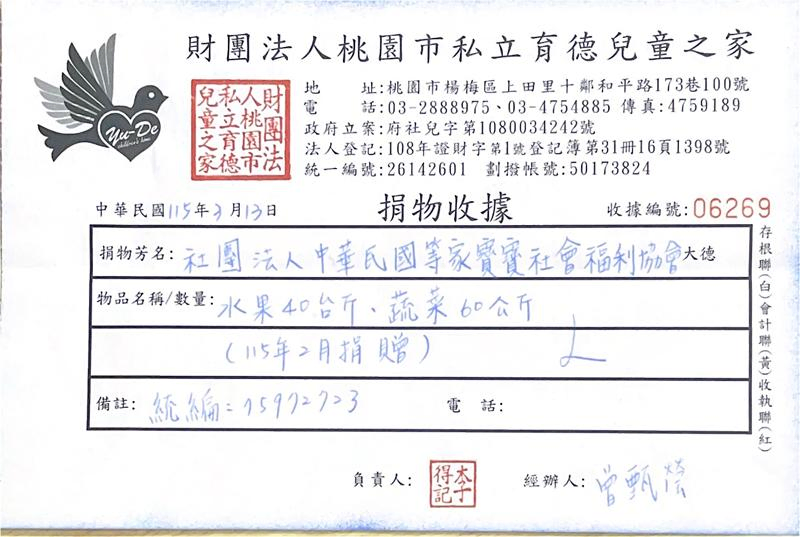 財團法人桃園市私立育德兒童之家
Yu-De
children's home
財團法人桃園市私立育德兒童之家
地 址:桃園市楊梅區上田里十鄰和平路173巷100號
電 話:03-2888975、03-4754885 傳真:4759189
政府立案:府社兒字第1080034242號
法人登記:108年證財字第1號登記簿第31冊16頁1398號
統一編號:26142601 劃撥帳號:50173824
中華民國115年3月13日
捐物收據
收據編號:06269
捐物芳名:社團法人中華民國等家寶寶社會福利協會大德
物品名稱/數量:水果40台斤、蔬菜60公斤
(115年2月捐贈)
備註:統編:15972723
電 話:
存根聯(白)會計聯(黃)收執聯(紅)
負責人:
經辦人:曾甄瑩